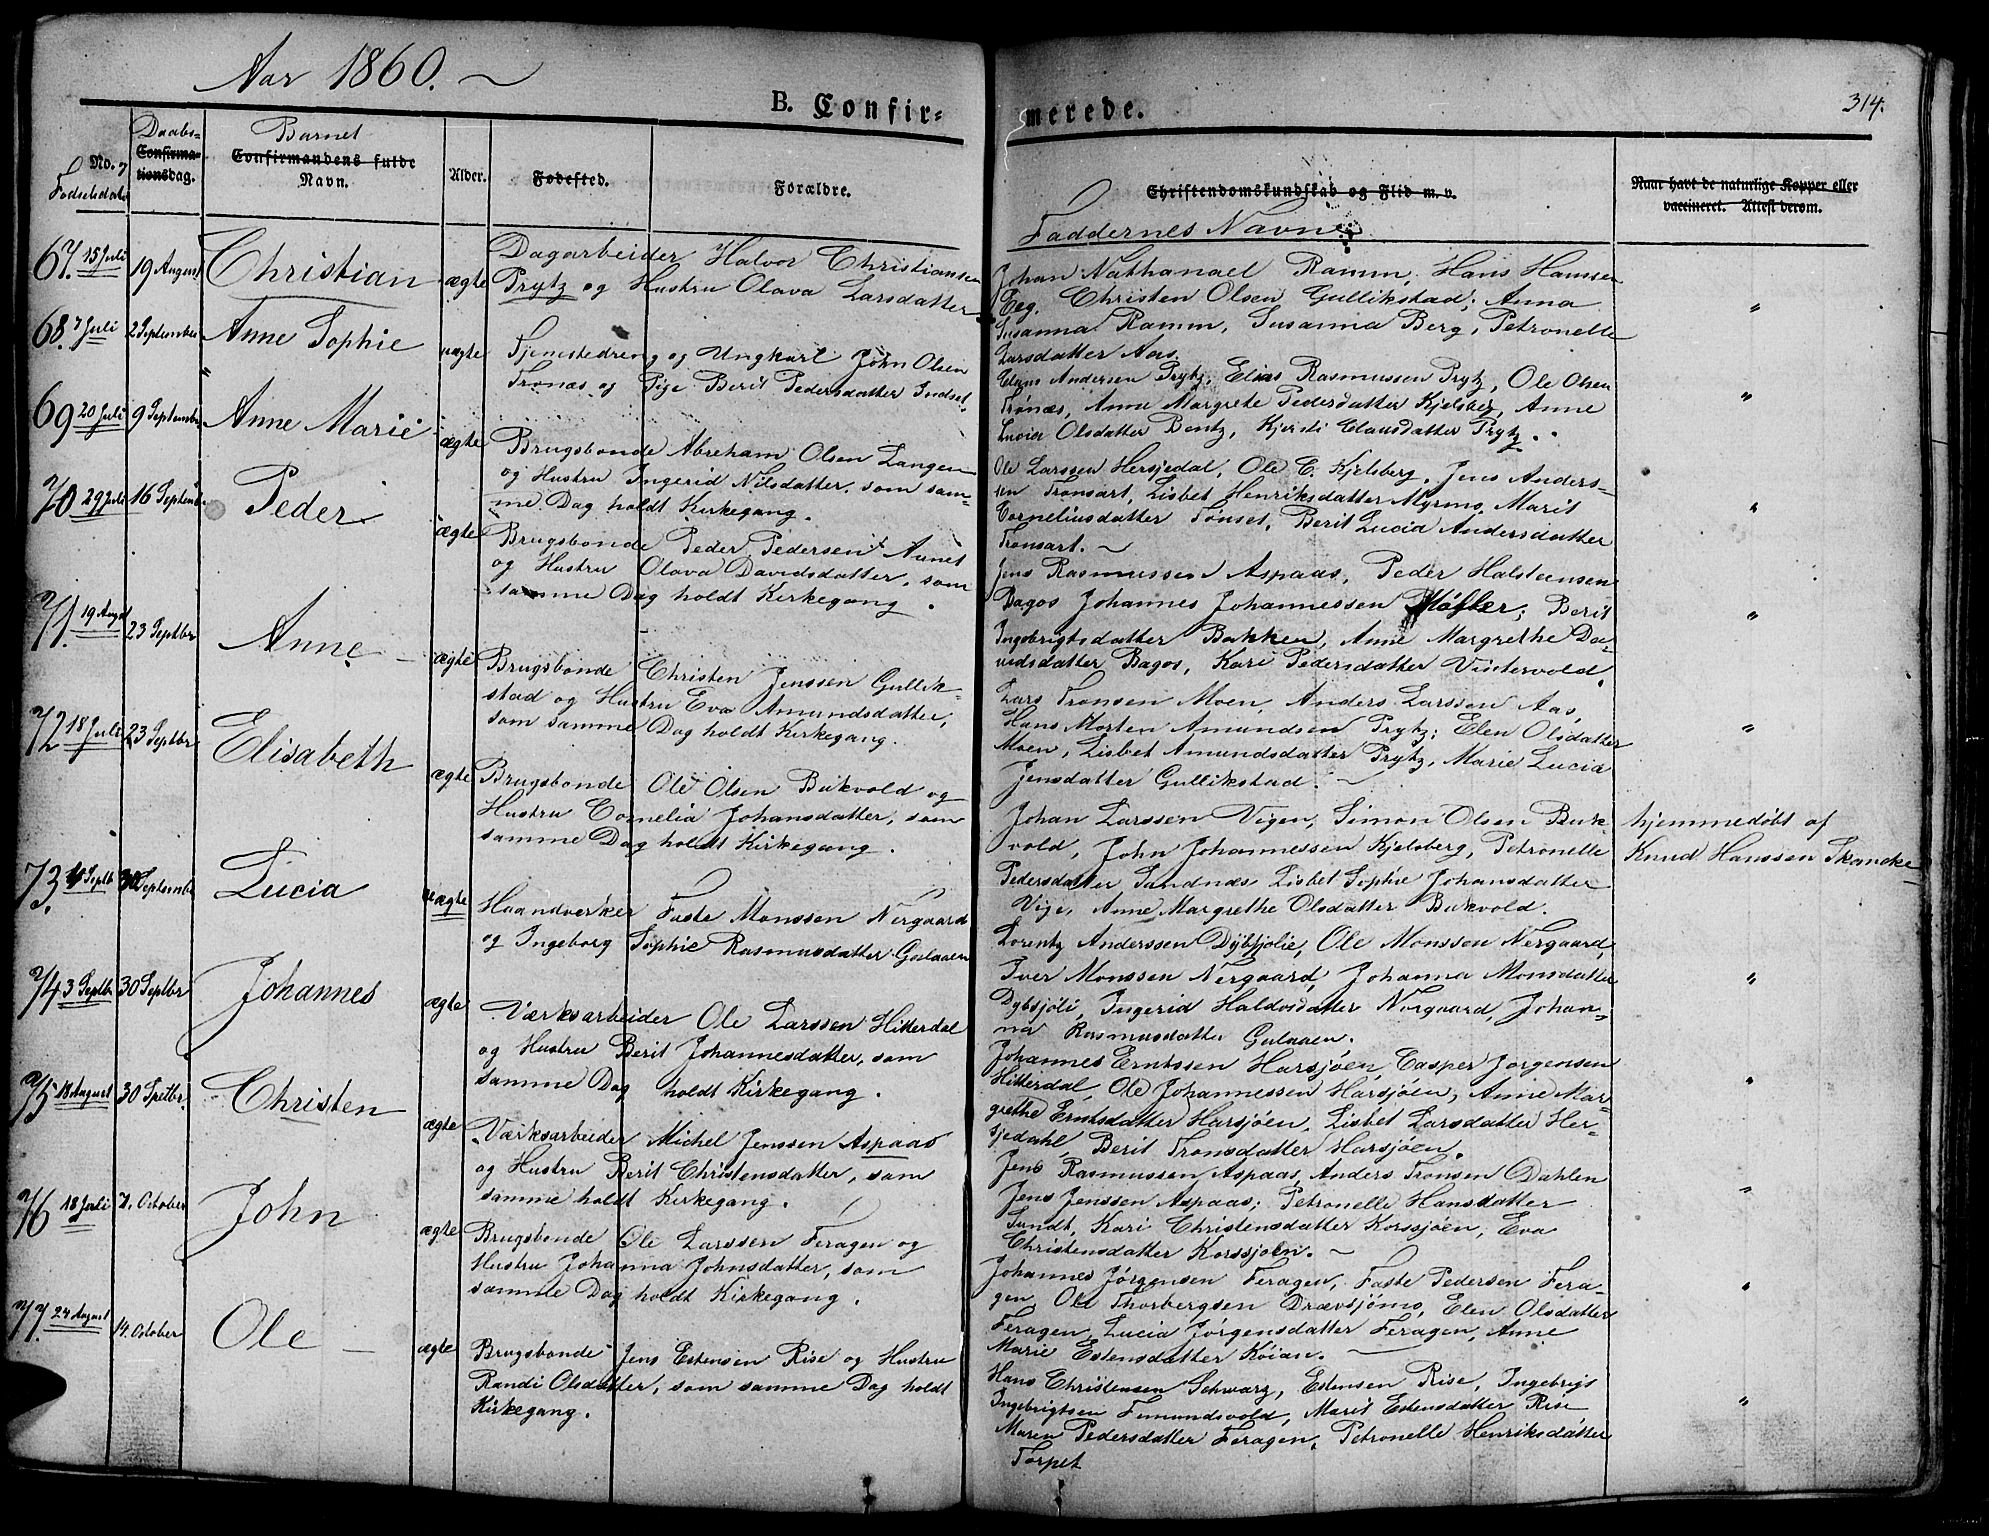 Aar 1860.
B. Confir-
merede.
314.
No. Fødselsdato
Daabs-
Confirma-
tionsdag.
Barnet
Confirmandens fulde
Navn.
Alder.
Fødested.
Forældre.
Christendomskundskab og Flid m. v.
Faddernes Navne
Naar havt de naturlige Kopper eller
vaccineret. Attest derom.
67. 15 Juli
19 August
Christian
ægte
Dagarbeider Halvor Christiansen
Prytz og Hustru Olava Larsdatter
Johan Nathanael Ramm, Hans Hansen
Eeg, Christen Olsen Gullikstad; Anna
Susanna Ramm, Susanna Berg, Petronelle
Larsdatter Aas.
"
68. 7 Juli
2 September
Anne Sophie
uægte
Tjenestedreng og Ungkarl John Olsen
Tronæs og Pige Berit Pedersdatter Indset.
Claus Andersen Prytz, Elias Rasmussen Prytz, Ole Olsen
Trønæs, Anne Margrete Pedersdatter Kjelsberg, Anne
Lucia Olsdatter Bentz, Kjersti Clausdatter Prytz.
"
69 20 Juli
9 Septembr
Anne Marie
ægte
Brugsbonde Abreham Olsen Langen
og Hustru Ingerid Nilsdatter, som sam-
me Dag holdt Kirkegang.
Ole Larssen Hersjedal, Ole C. Kjelsberg, Jens Anders-
sen Tronsart, Lisbet Henriksdatter Myrmo, Marit
Corneliusdatter Tønset, Berit Lucia Andersdatter
Tronsart.
"
70 29 Juli
16 Septembr
Peder
ægte
Brugsbonde Peder Pedersen Aunet
og Hustru Olava Davidsdatter, som
samme Dag holdt Kirkegang.
Jens Rasmussen Aspaas, Peder Halsteensen
Bagos, Johannes Johannessen Møller; Berit
Ingebrigtsdatter Bakken, Anne Margrethe Da-
vidsdatter Bagos, Kari Pedersdatter Vintervold.
"
71. 19 Augst
23 Septbr
Anne
ægte
Brugsbonde Christen Jenssen Gullik-
stad og Hustru Eva Amundsdatter,
som samme Dag holdt Kirkegang.
Lars Tronsen Moen, Anders Larssen Aas,
Hans Morten Amundsen Prytz; Elen Olsdatter
Moen, Lisbet Amundsdatter Prytz, Marie Lucia
Jensdatter Gullikstad.
"
72 18 Juli
23 Septbr
Elisabeth
ægte
Brugsbonde Ole Olsen Bukvold og
Hustru Cornelia Johansdatter, som
samme Dag holdt Kirkegang.
Johan Larssen Vigen, Simon Olsen Buk-
vold, John Johannessen Kjelsberg, Petronelle
Pedersdatter Sandnæs, Lisbet Sophie Johansdatter
Vige, Anne Margrethe Olsdatter Bukvold.
hjemmedøbt af
Knud Hanssen Skancke
73. Septb
30 Septembr
Lucia
uægte
Haandverker Faste Monssen Nergaard
og Ingeborg Sophie Rasmusdatter Gulaaen
Lorentz Anderssen Dybsjolie, Ole Monssen Nergaard,
Iver Monssen Nergaard, Johanna Monsdatter
Dybsjoli, Ingerid Haldosdatter Nergaard, Johan-
na Rasmusdatter Gulaaen.
"
74 3 Septbr
30 Septbr
Johannes
ægte
Værksarbeider Ole Larssen Hitterdal
og Hustru Berit Johannesdatter, som
samme Dag holdt Kirkegang.
Johannes Erntssen Harsjøen, Casper Jørgensen
Hitterdal, Ole Johannessen Harsjøen, Anne Mar-
grethe Erntsdatter Harsjøen, Lisbet Larsdatter Her-
sjedahl, Berit Tronsdatter Harsjøen.
"
75 18 August
30 Septbr.
Christen
ægte
Værksarbeider Michel Jenssen Aspaas
og Hustru Berit Christensdatter, som
samme holdt Kirkegang.
Jens Rasmussen Aspaas, Anders Tronsen Dahlen
Jens Jenssen Aspaas; Petronelle Hansdatter
Sundt, Kari Christensdatter Korssjøen, Eva
Christensdatter Korssjoen.
"
76 18 Juli
7. October
John
ægte
Brugsbonde Ole Larssen Feragen og
Hustru Johanna Johnsdatter, som
samme Dag holdt Kirkegang.
Johannes Jørgensen Feragen, Faste Pedersen Fera-
gen, Ole Thorbergsen Drævsjømo, Elen Olsdatter
Feragen, Lucia Jørgensdatter Feragen, Anne
Marie Estensdatter Koian.
"
77. 24 August
14. October
Ole
ægte
Brugsbonde Jens Estensen Rise og Hustru
Randi Olsdatter, som samme Dag holdt
Kirkegang.
Hans Christensen Schwarz, Estensen Rise, Ingebrigt
Ingebrigtsen Femundsvold, Marit Estensdatter Rise
Maren Pedersdatter Feragen, Petronelle Henriksdatter
Torpet
"